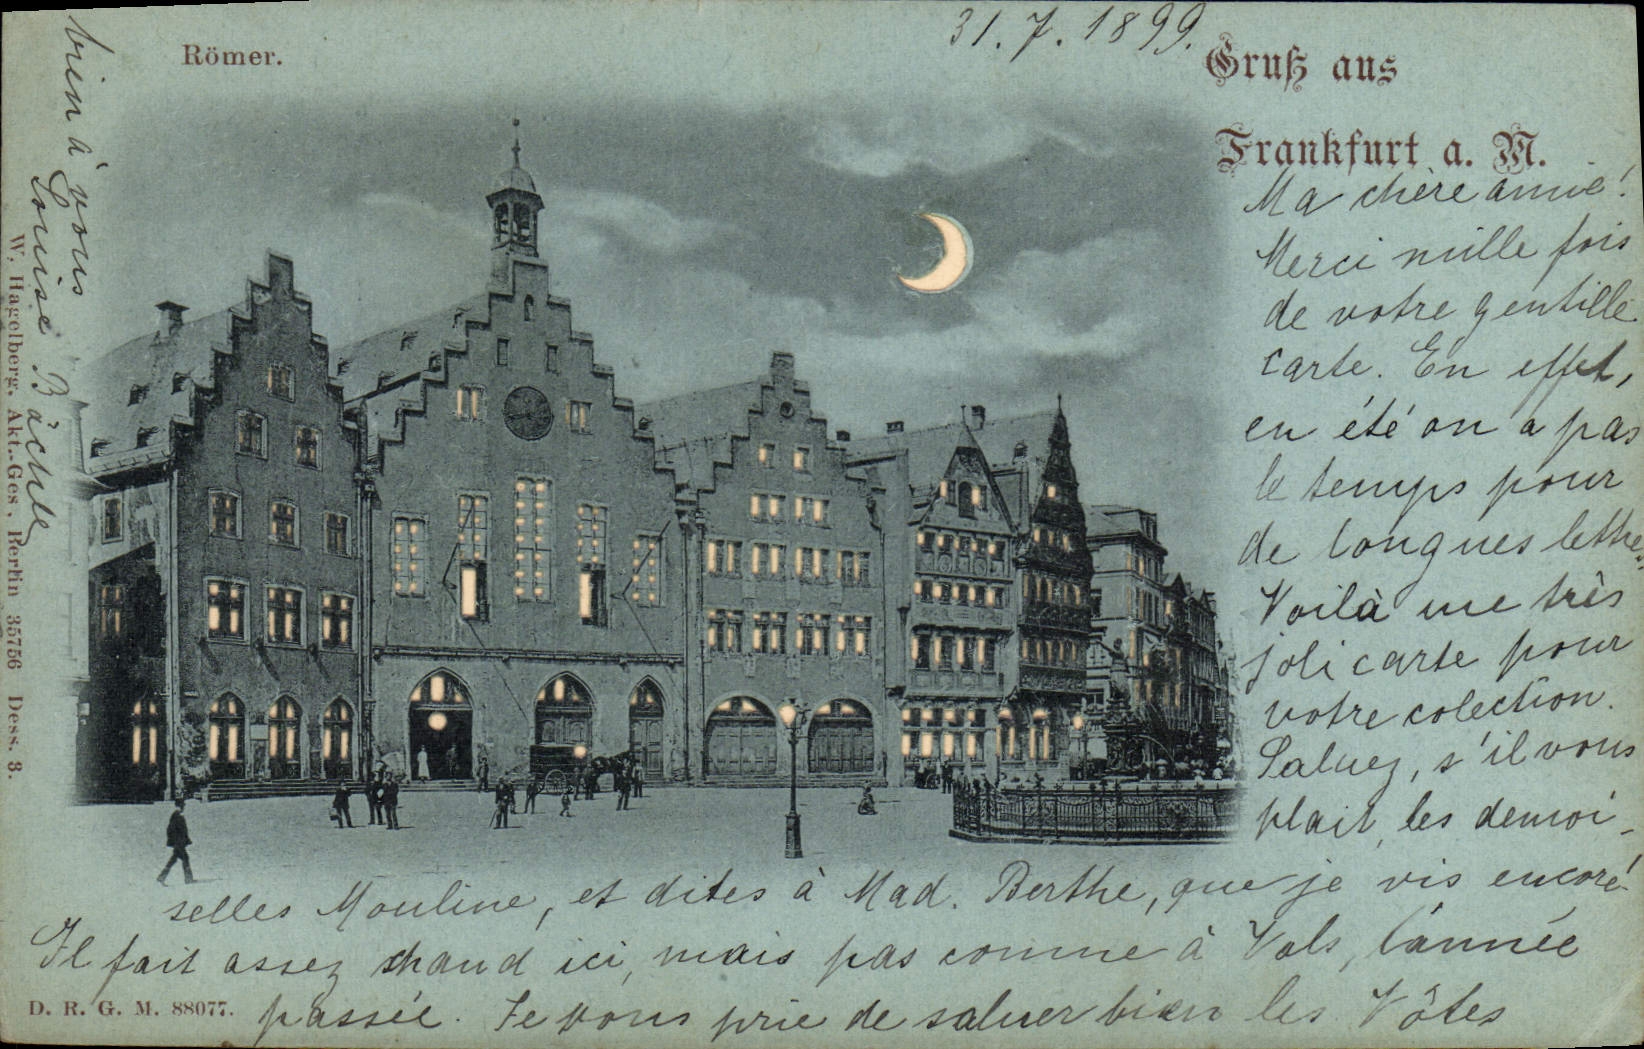 31. 7. 1899.
Römer.
Gruß aus
Frankfurt a. M.
Ma chère amie!
Merci mille fois
de votre gentille
carte. En effet,
en été on a pas
le temps pour
de longues lettres.
Voilà une très
joli carte pour
votre colection.
Saluez, s'il vous
plait, les demoi-
selles Mouline, et dites à Mad. Berthe, que je vis encore.
Il fait assez chaud ici, mais pas comme à Vals, l'année
passée. Je vous prie de saluer bien les Vôtes
bien à vous
Louise Bächle
D. R. G. M. 88077.
W. Hagelberg, Akt.-Ges., Berlin 35756 Dess. 3.